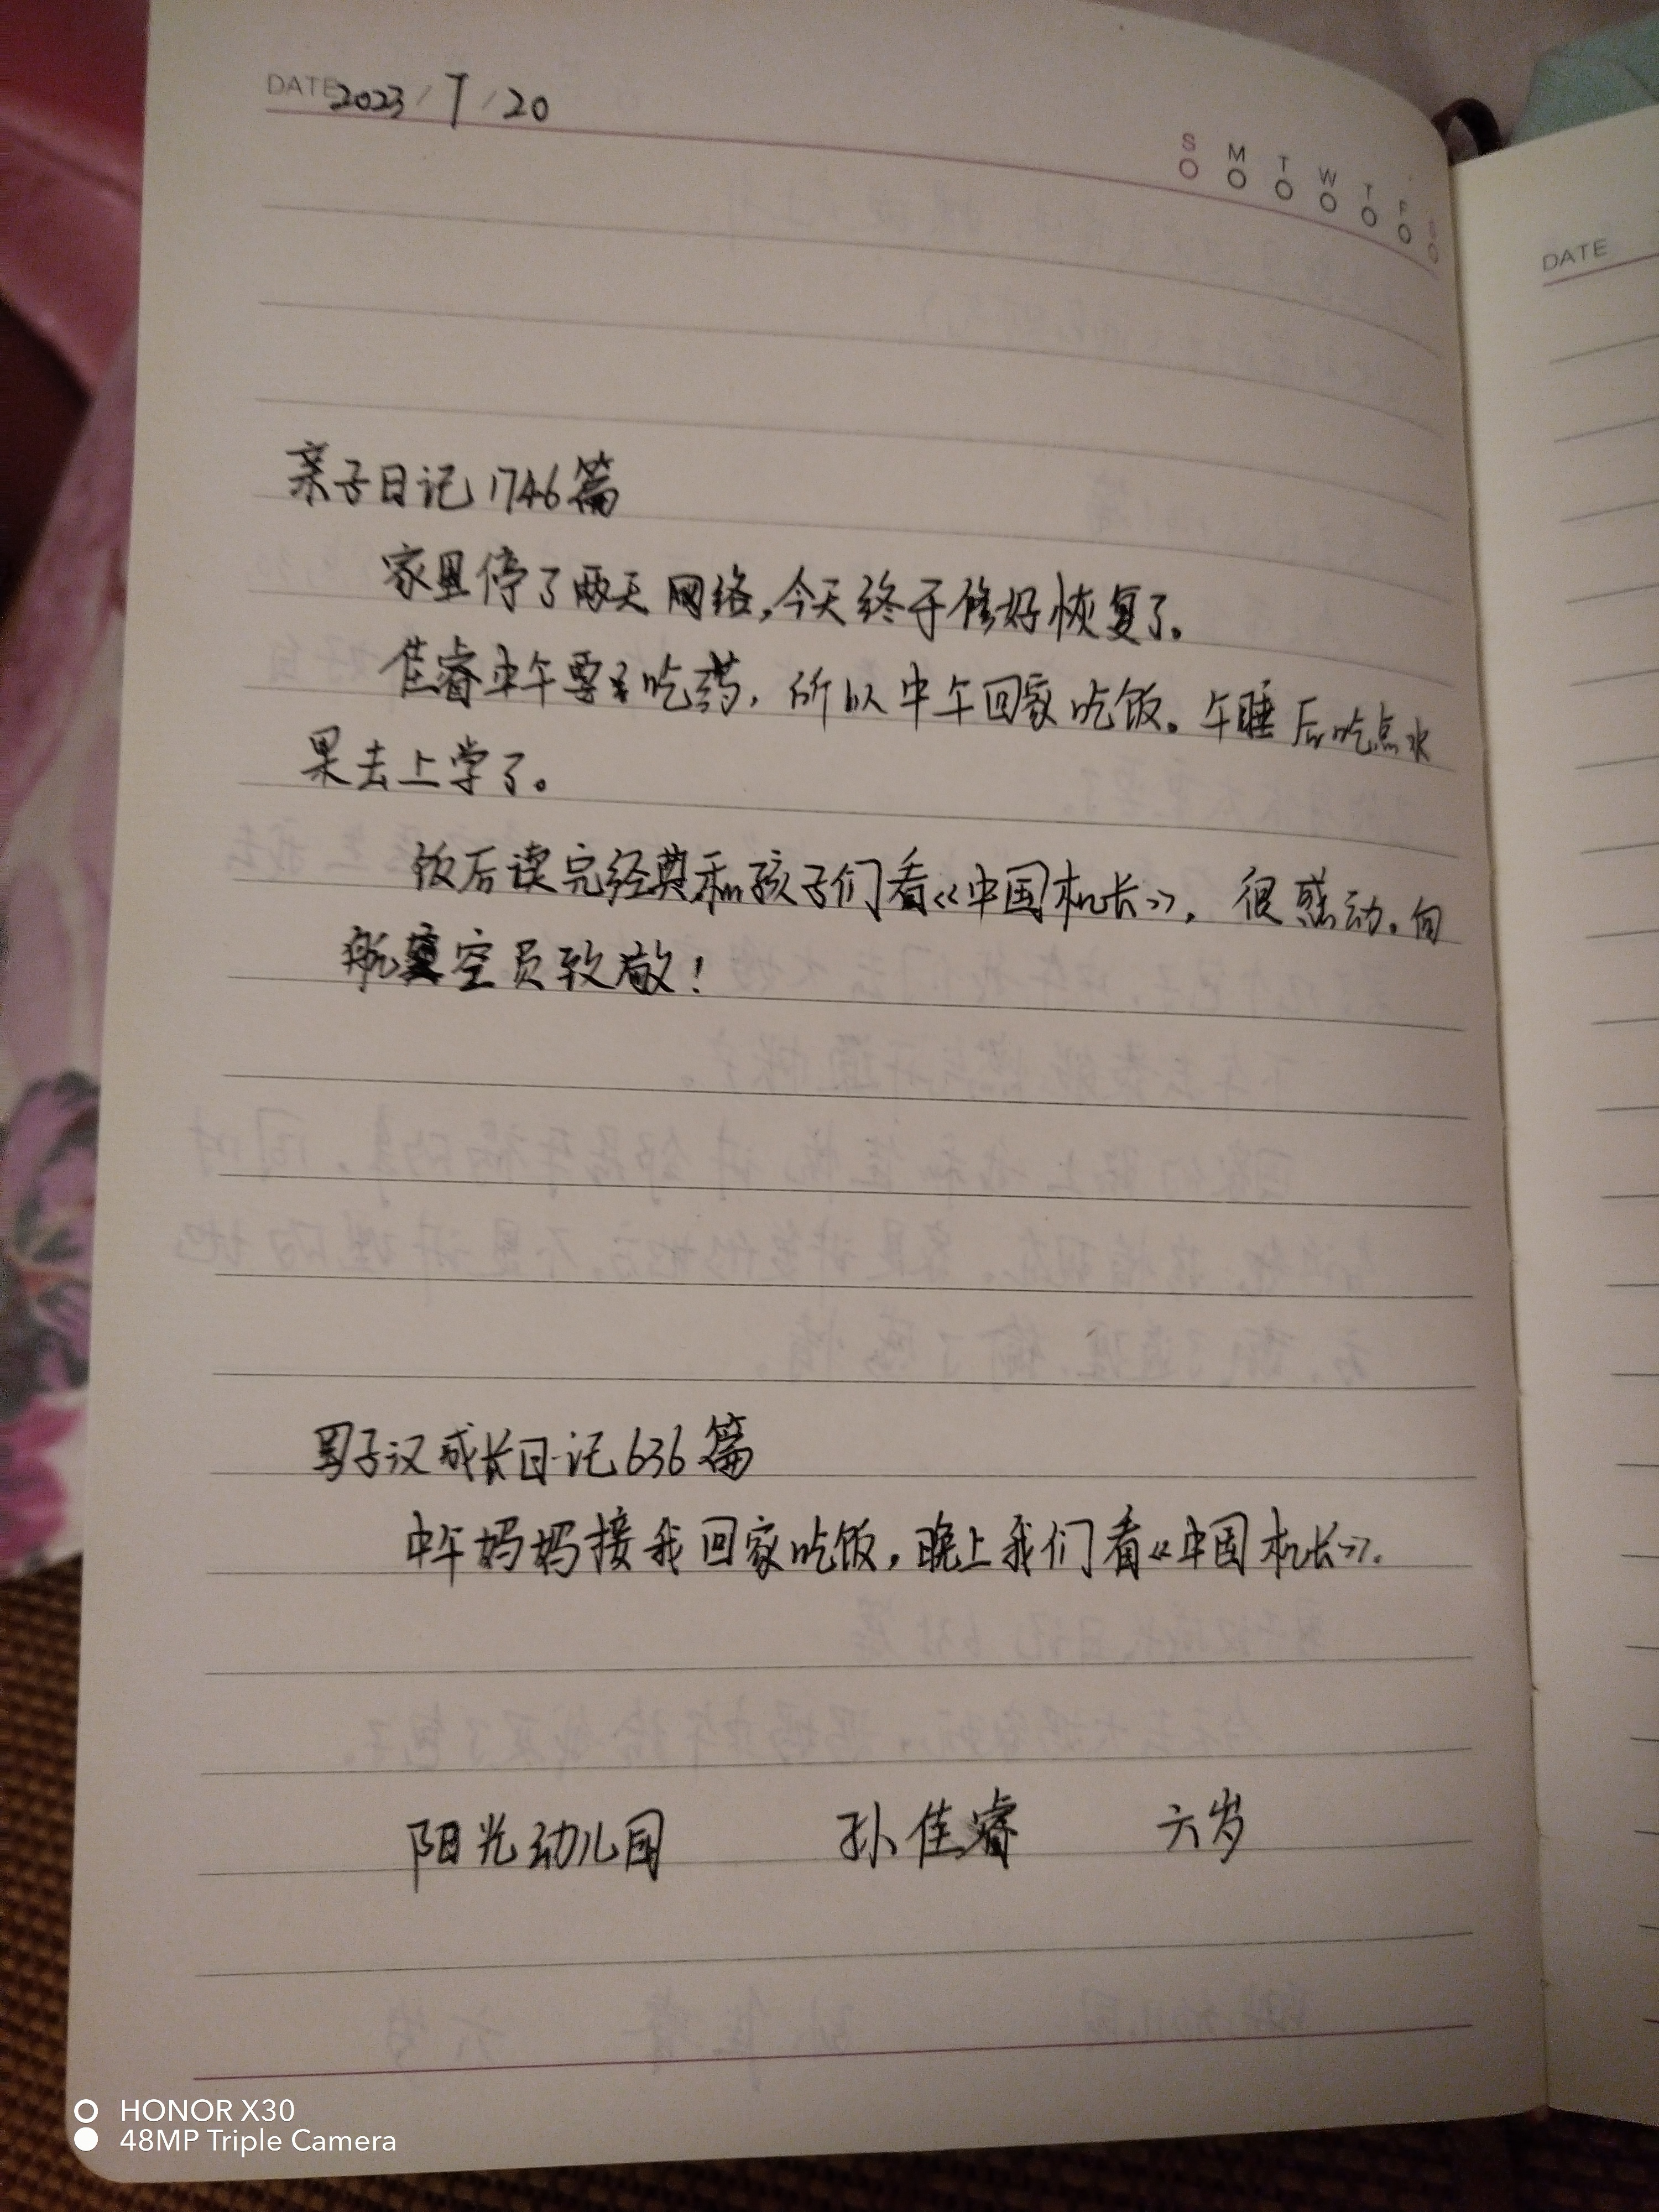 DATE 2023/7/20
S M T W T F S
DATE
亲子日记1746篇
家里停了两天网络,今天终于修好恢复了。
佳睿中午要吃药,所以中午回家吃饭。午睡后吃点水
果去上学了。
饭后读完经典和孩子们看《中国机长》,很感动。向
航空员致敬!
男子汉成长日记636篇
中午妈妈接我回家吃饭,晚上我们看《中国机长》.
阳光幼儿园 孙佳睿 六岁
HONOR X30
48MP Triple Camera